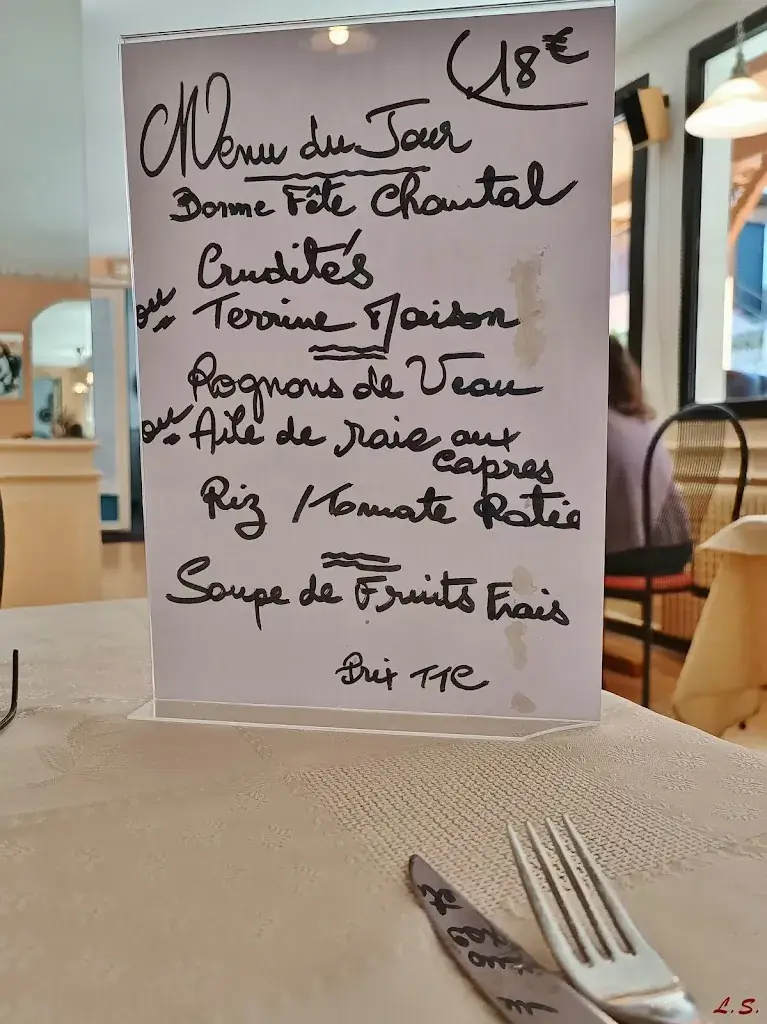 18€
Menu du Jour
Bonne Fête Chantal
Crudités
ou Terrine Maison
Rognons de Veau
ou Aile de raie aux
capres
Riz / Tomate Rotie
Soupe de Fruits Frais
Prix TTC
L.S.